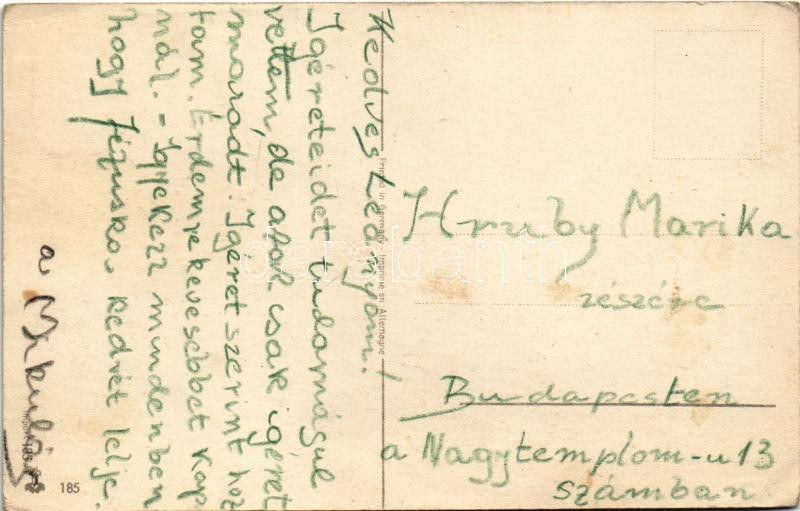 Kedves Leányom!
Igéreteidet tudomásul
vettem, de azok csak igéret
maradt. Igéret szerint hoz
tam. Érdemje kevesebbet kap
nál. - Igyekezz mindenben
hogy Jézuska kedvét lelje.
a Mikulás
Printed in Germany - Imprimé en Allemagne
185
Hruby Marika
részére
Budapesten
a Nagytemplom-u 13
számban
darabanth